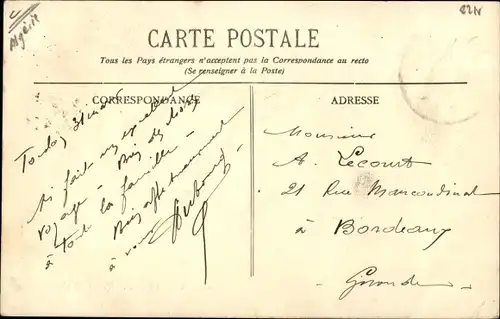 Algérie
CARTE POSTALE
Tous les Pays étrangers n'acceptent pas la Correspondance au recto
(Se renseigner à la Poste)
CORRESPONDANCE
ADRESSE
Ai fait un excellent
voyage - Bien des choses
à toute la famille -
Bien affectueusement
à vous
Monsieur
A. Lecourt
21 Rue
à Bordeaux
Gironde